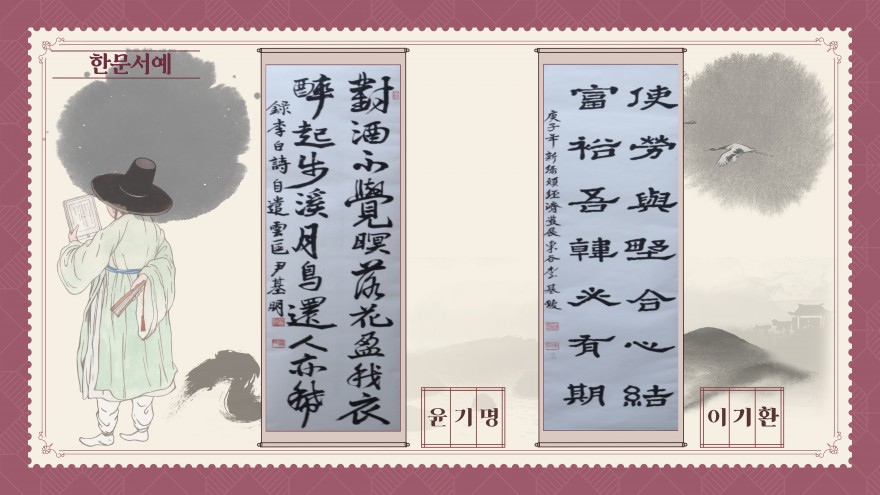 한문서예
對酒不覺暝落花盈我衣
醉起步溪月鳥還人亦稀
錄李白詩自遣 雲匡 尹基明
윤기명
使勞與堅合心結
富裕吾韓必有期
庚子年新綠頌經濟發展 東谷 李
이기환